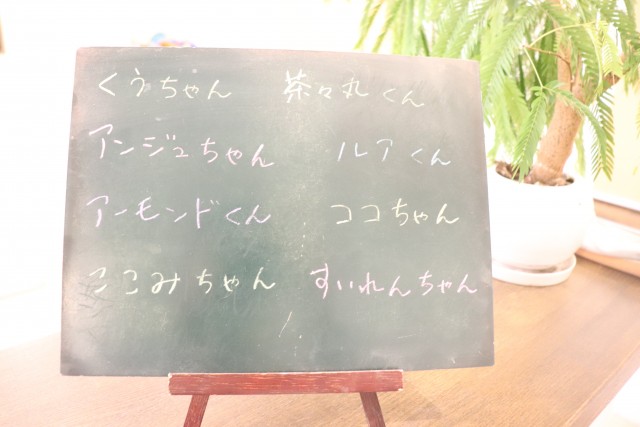 くうちゃん 茶々丸くん
アンジュちゃん ルアくん
アーモンドくん ココちゃん
ここみちゃん すいれんちゃん